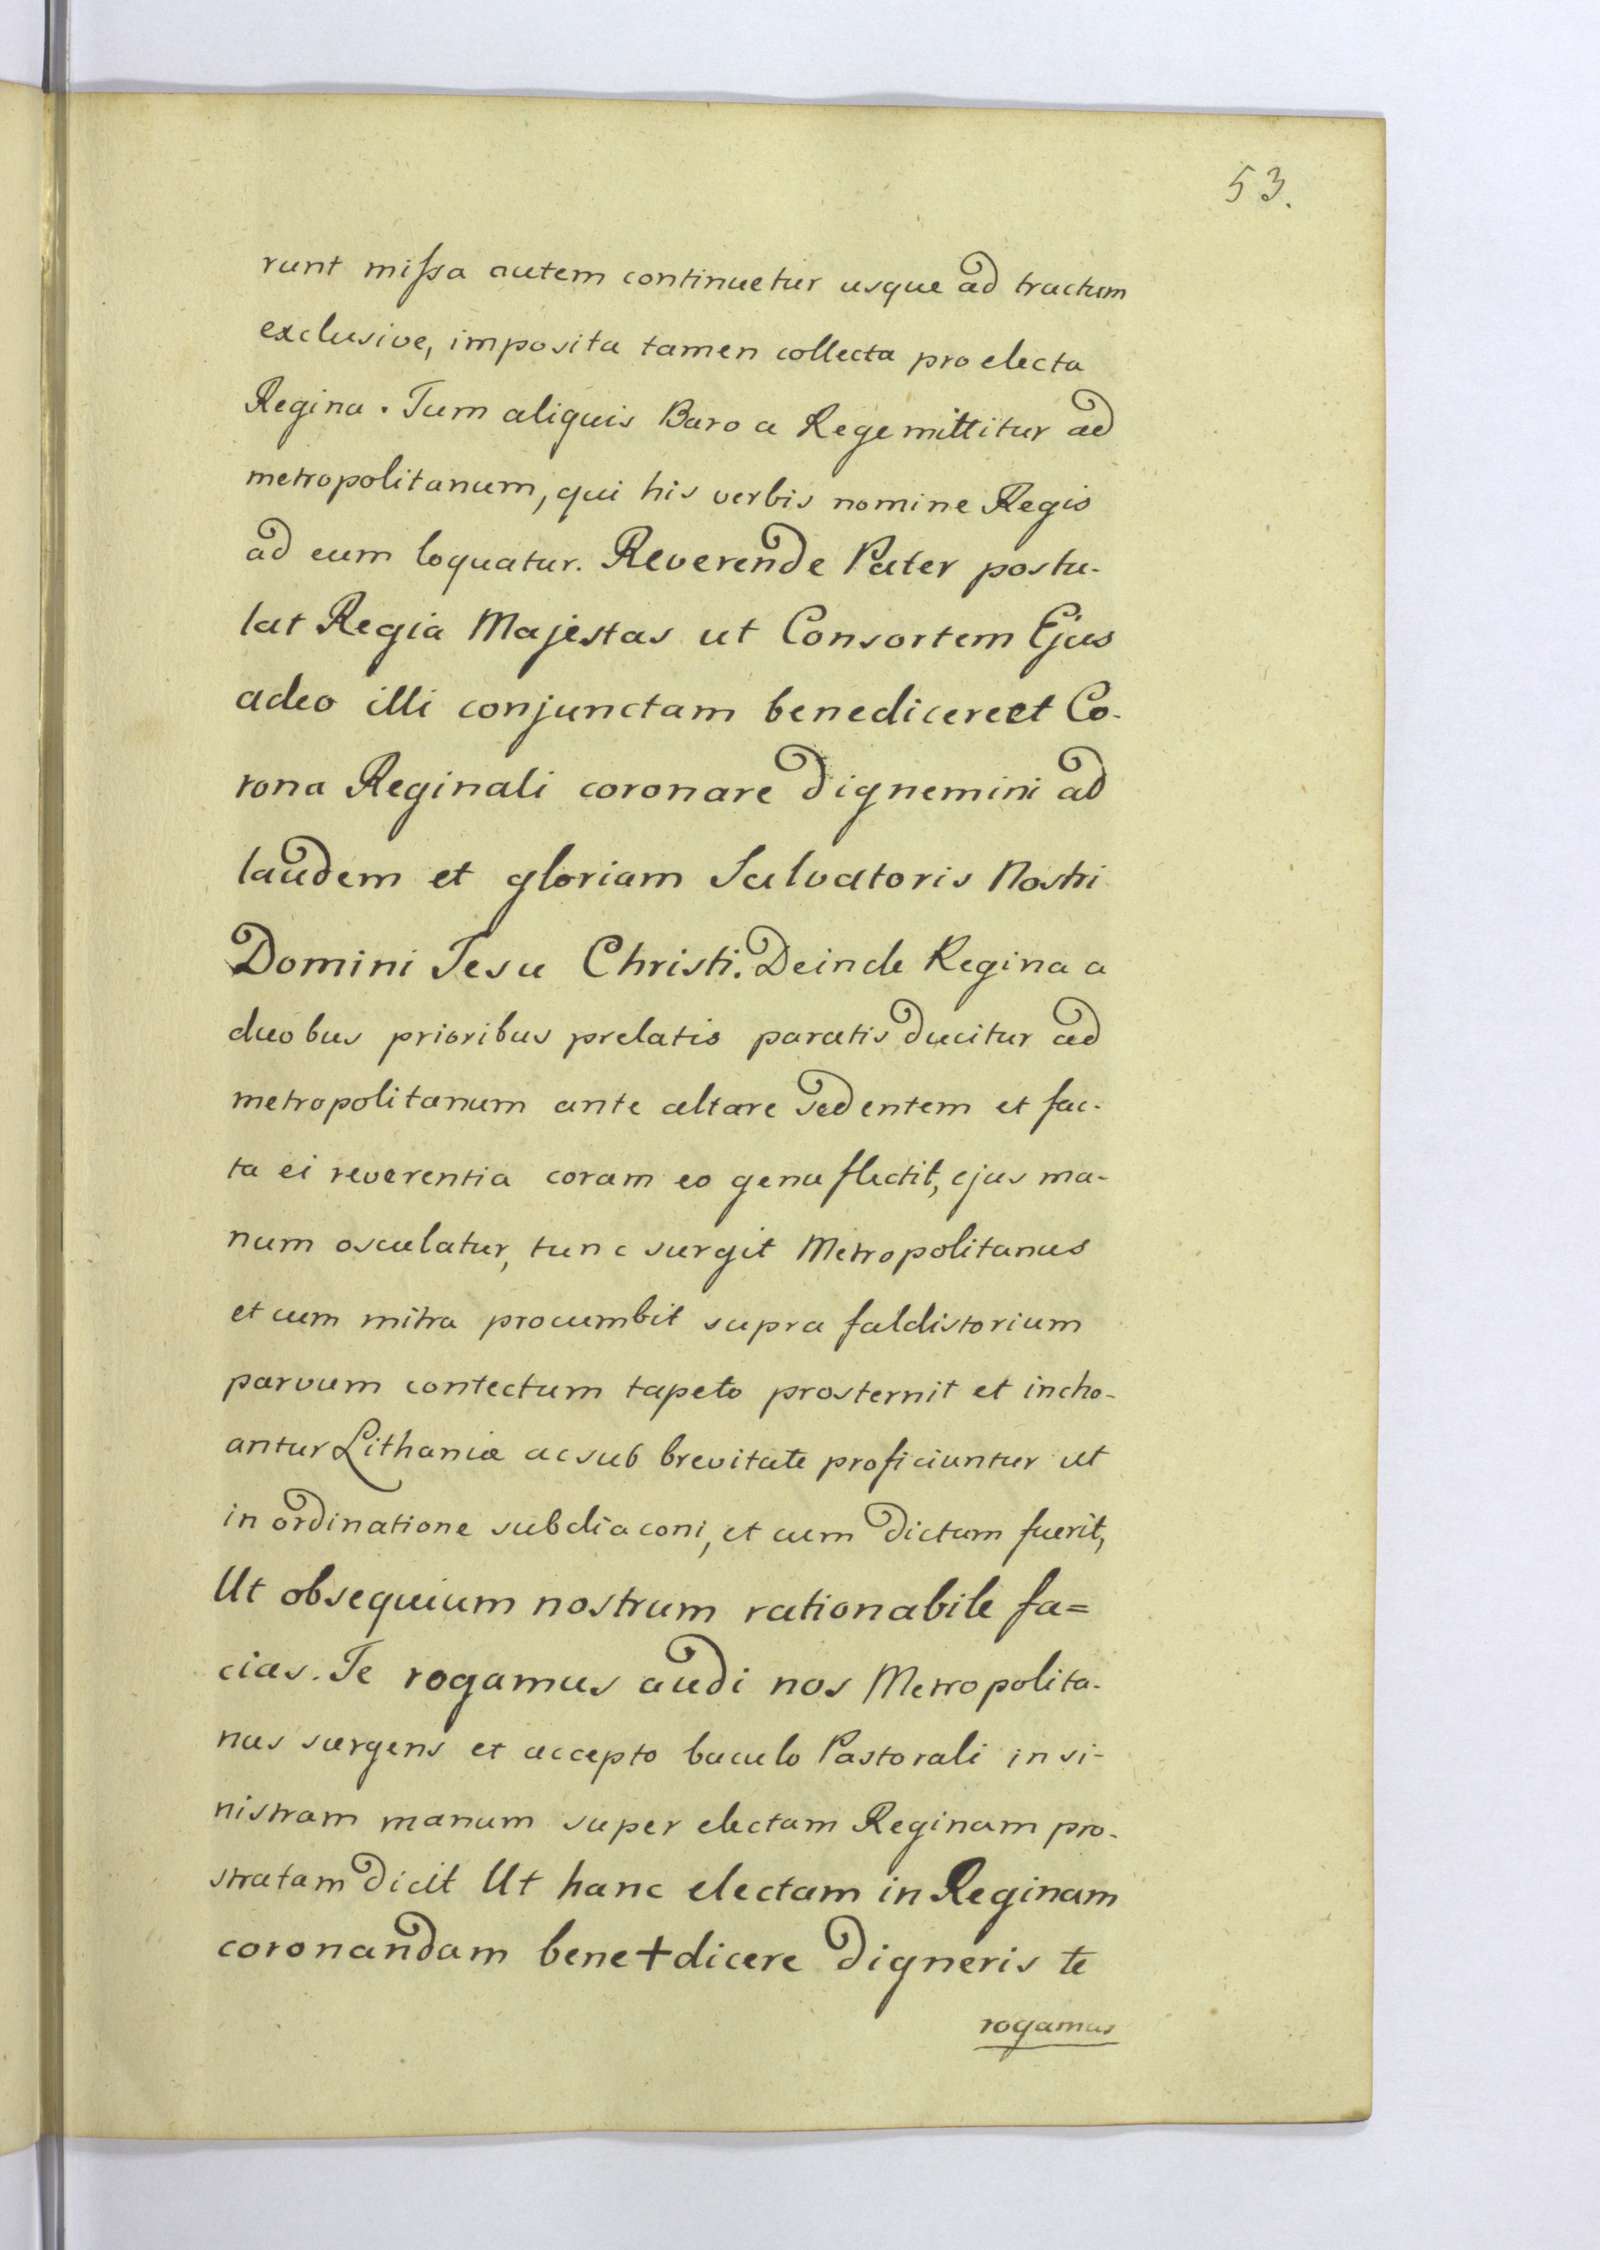 53.
runt missa autem continuetur usque ad tractum
exclusive, imposita tamen collecta pro electa
Regina. Tum aliquis Baro a Rege mittitur ad
metropolitanum, qui his verbis nomine Regis
ad eum loquatur. Reverende Pater postu-
lat Regia Majestas ut Consortem Ejus
adeo illi conjunctam benedicere et Co-
rona Reginali coronare dignemini ad
laudem et gloriam Salvatoris Nostri
Domini Jesu Christi. Deinde Regina a
duobus prioribus prelatis paratis ducitur ad
metropolitanum ante altare sedentem et fac-
ta ei reverentia coram eo genu flectit, ejus ma-
num osculatur, tunc surgit Metropolitanus
et cum mitra procumbit supra faldistorium
parvum contectum tapeto prosternit et incho-
antur Lithaniæ ac sub brevitate proficiuntur ut
in ordinatione subdiaconi, et cum dictum fuerit,
Ut obsequium nostrum rationabile fa=
cias. Te rogamus audi nos Metropolita-
nus surgens et accepto baculo Pastorali in si-
nistram manum super electam Reginam pro-
stratam dicit Ut hanc electam in Reginam
coronandam bene+dicere digneris te
rogamus